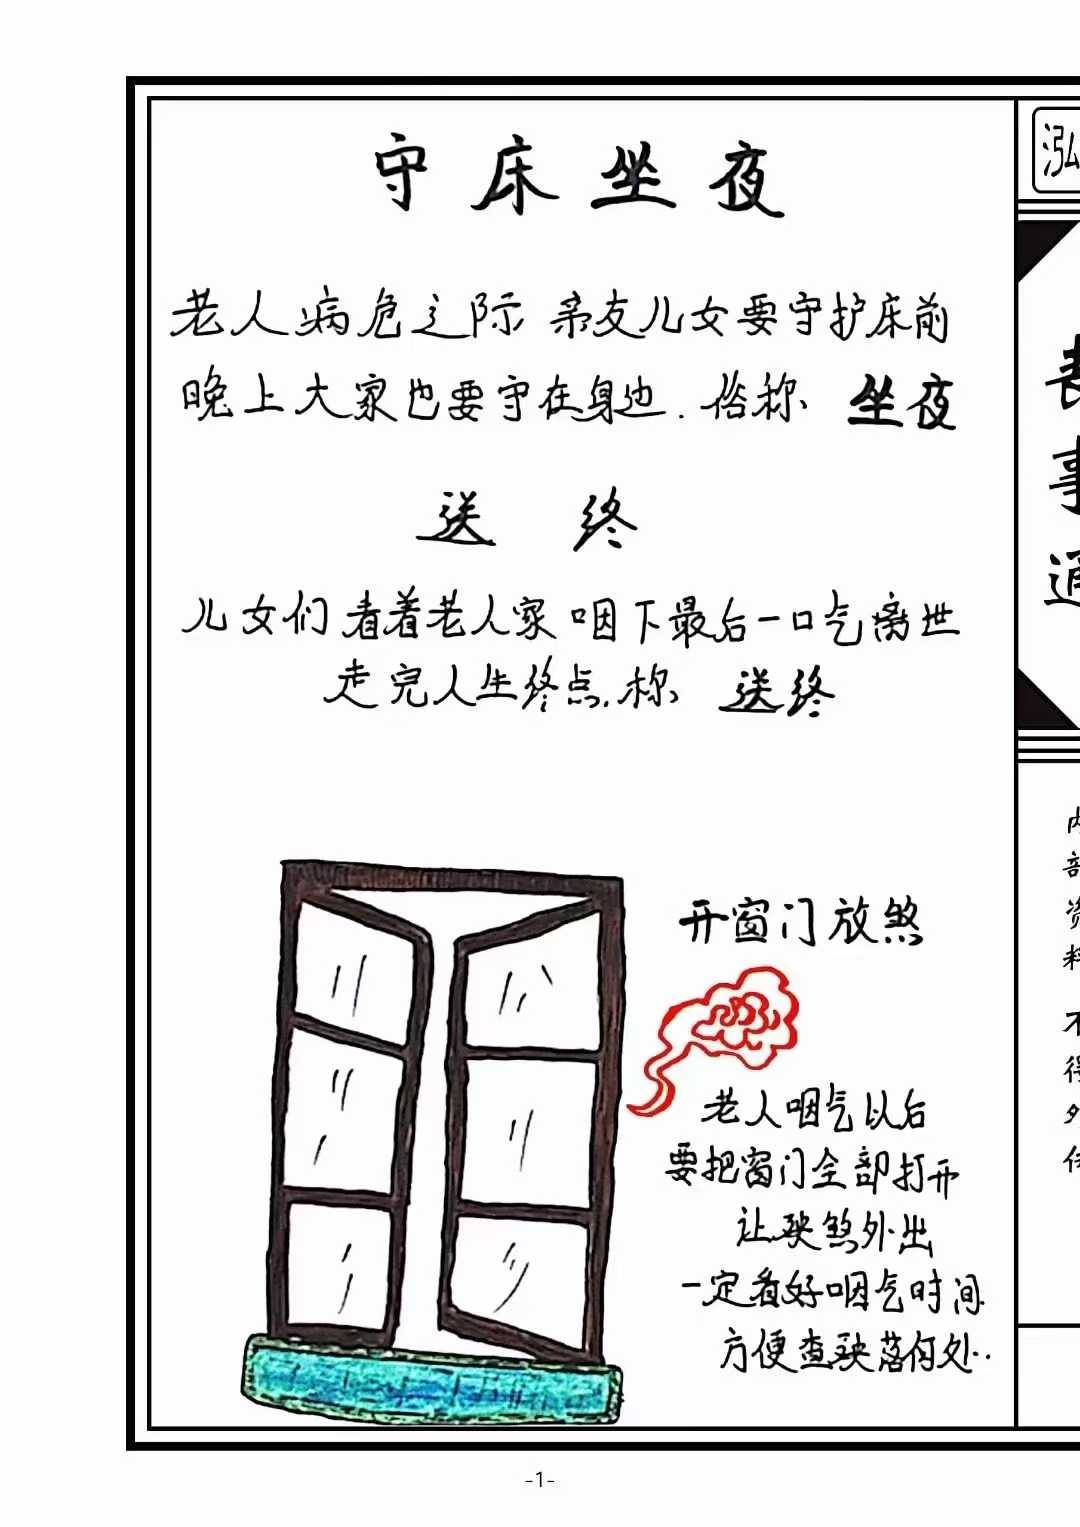 守床坐夜
老人病危之际 亲友儿女要守护床前
晚上大家也要守在身边.俗称 坐夜
送 终
儿女们看着老人家咽下最后一口气离世
走完人生终点.称 送终
开窗门放煞
老人咽气以后
要把窗门全部打开
让殃煞外出
一定看好咽气时间
方便查殃落何处.
泓
丧事通
内部资料
不得外
-1-